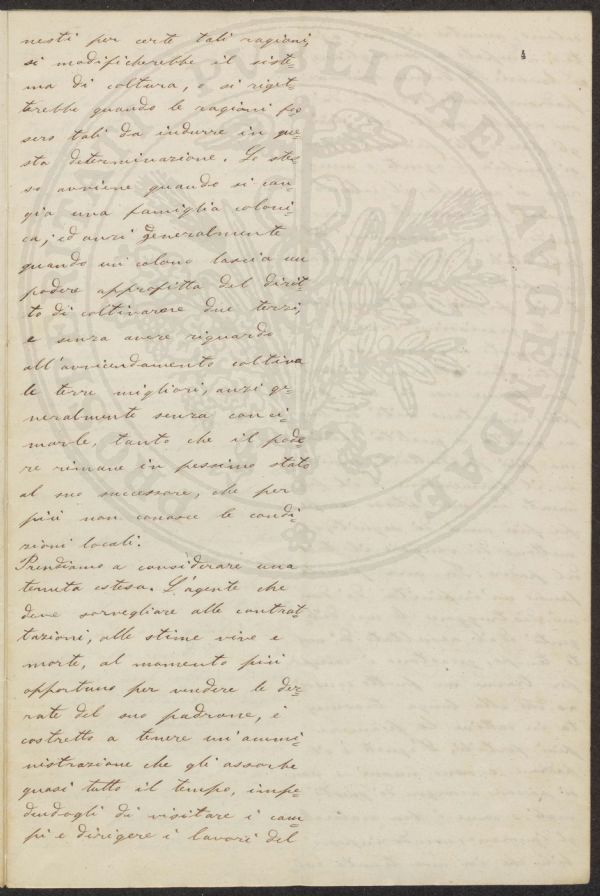 nesti per certe tali ragioni,
4
si modificherebbe il siste-
ma di coltura, o si riget-
terebbe quando le ragioni fos
sero tali da indurre in que-
sta determinazione. Lo stes-
so avviene quando si can-
gia una famiglia coloni-
ca; ed anzi generalmente
quando un colono lascia un
podere approfitta del dirit-
to di coltivarne due terzi,
e senza avere riguardo
all'avvicendamento coltiva
le terre migliori, anzi ge-
neralmente senza conci-
marle, tanto che il pode
re rimane in pessimo stato
al suo successore, che per
più non conosce le condi-
zioni locali.
Prendiamo a considerare una
tenuta estesa. L'agente che
deve sorvegliare alle contrat-
tazioni, alle stime vive e
morte, al momento più
opportuno per vendere le der-
rate del suo padrone, è
costretto a tenere un'ammi-
nistrazione che gli assorbe
quasi tutto il tempo, impe-
dendogli di visitare i cam-
pi e dirigere i lavori del
PUBLICAE AVGENDAE PRO